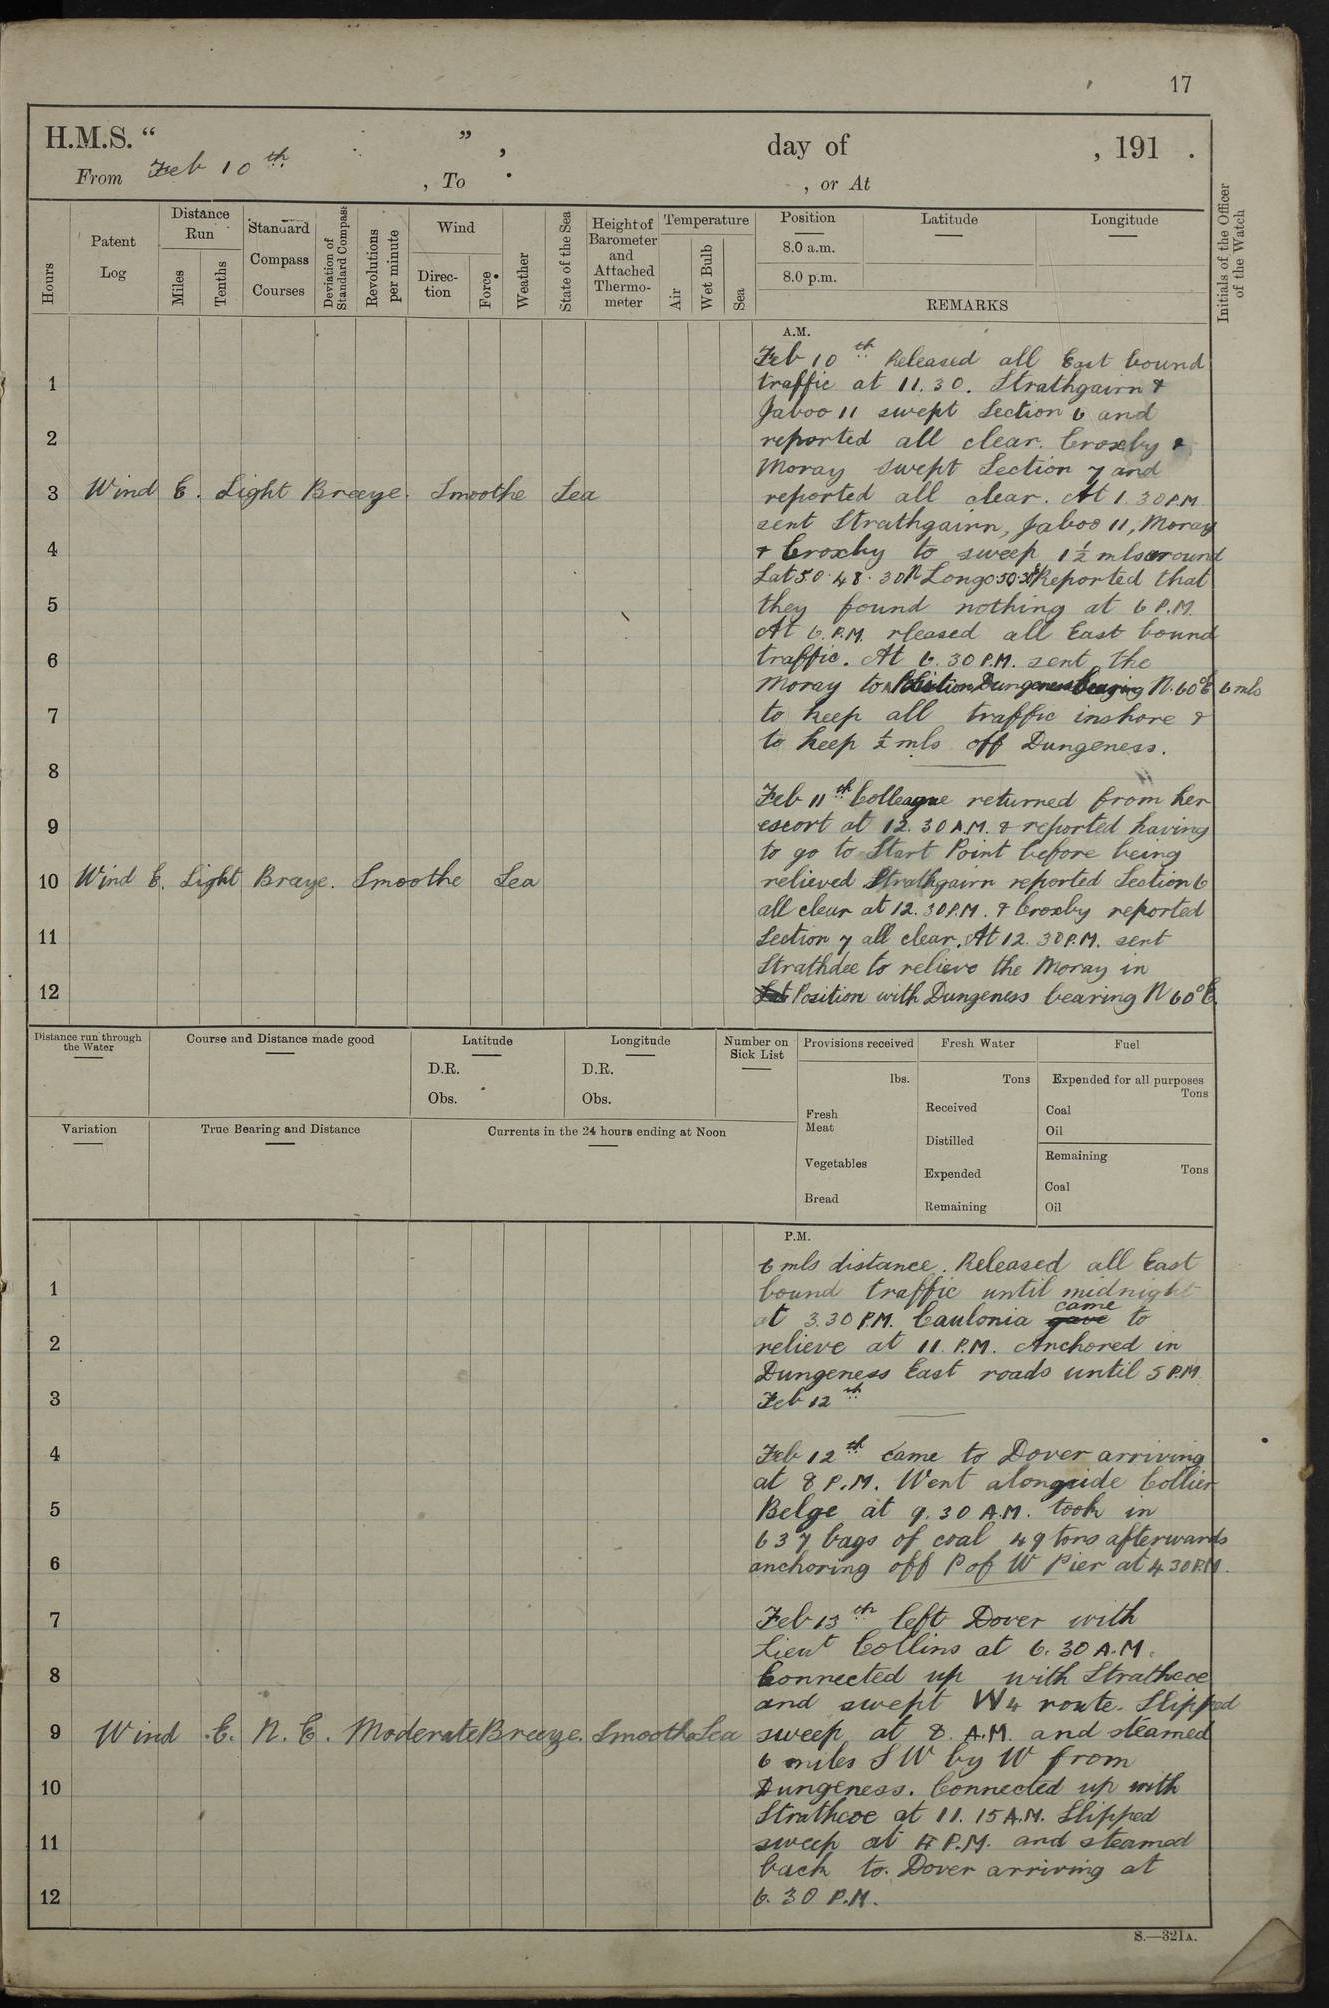 17
H.M.S. “ ”, day of , 191 .
From Feb 10th , To , or At
Hours
Patent Log
Distance Run
Miles
Tenths
Standard Compass Courses
Deviation of Standard Compass
Revolutions per minute
Wind
Direction
Force
Weather
State of the Sea
Height of Barometer and Attached Thermometer
Temperature
Air
Wet Bulb
Sea
Position
8.0 a.m.
8.0 p.m.
Latitude
Longitude
REMARKS
Initials of the Officer of the Watch
A.M.
Feb 10th Released all East bound
1 traffic at 11.30. Strathgairn &
Jaboo 11 swept Section 6 and
2 reported all clear. Croxby &
Moray swept Section 7 and
3 Wind E. Light Breeze. Smoothe Sea reported all clear. At 1.30 P.M
sent Strathgairn, Jaboo 11, Moray
4 & Croxby to sweep 1½ mls around
Lat 50.48.30 N Long 0 Reported that
5 they found nothing at 6 P.M.
At 6. P.M. rleased all East bound
6 traffic. At 6.30 P.M. sent the
Moray to Position Dungeness bearing N.60°E 6 mls
7 to keep all traffic inshore &
to keep ½ mls off Dungeness.
8
Feb 11th Colleague returned from her
9 escort at 12.30 A.M. & reported having
to go to Start Point before being
10 Wind E. Light Braye. Smoothe Sea relieved Strathgairn reported Section 6
all clear at 12.30 P.M. & Croxby reported
11 Section 7 all clear. At 12.30 P.M. sent
Strathdee to relieve the Moray in
12 Lat Position with Dungeness bearing N 60°E.
Distance run through the Water
Course and Distance made good
Latitude
D.R.
Obs.
Longitude
D.R.
Obs.
Number on Sick List
Provisions received
lbs.
Fresh Meat
Vegetables
Bread
Fresh Water
Tons
Received
Distilled
Expended
Remaining
Fuel
Expended for all purposes
Tons
Coal
Oil
Remaining
Tons
Coal
Oil
Variation
True Bearing and Distance
Currents in the 24 hours ending at Noon
P.M.
6 mls distance. Released all East
1 bound traffic until midnight
at 3.30 P.M. Caulonia gave came to
2 relieve at 11. P.M. Anchored in
Dungeness East roads until 5 P.M
3 Feb 12th
4 Feb 12th came to Dover arriving
at 8 P.M. Went alongside Collier
5 Belge at 9.30 A.M. took in
637 bags of coal 49 tons afterwards
6 anchoring off P of W Pier at 4.30 P.M.
7 Feb 13th left Dover with
Lieut Collins at 6.30 A.M.
8 Connected up with Strathcoe
and swept W4 route. Slipped
9 Wind E. N. E. Moderate Breeze. Smoothe Sea sweep at 8. A.M. and steamed
6 miles S W by W from
10 Dungeness. Connected up with
Strathcoe at 11.15 A.M. Slipped
11 sweep at 4 P.M. and steamed
back to Dover arriving at
12 6.30 P.M.
S.—321A.